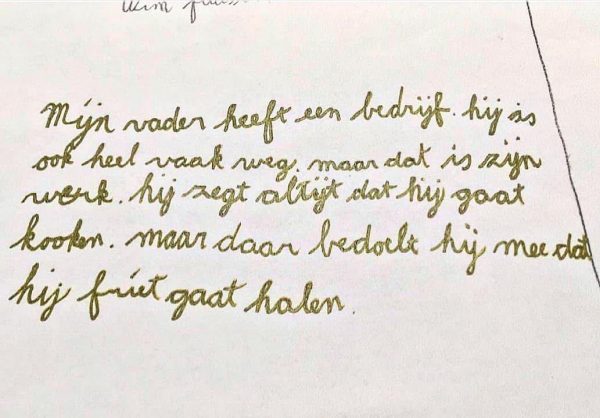 Mijn vader heeft een bedrijf. hij is
ook heel vaak weg, maar dat is zijn
werk. hij zegt altijt dat hij gaat
kooken. maar daar bedoelt hij mee dat
hij friet gaat halen.